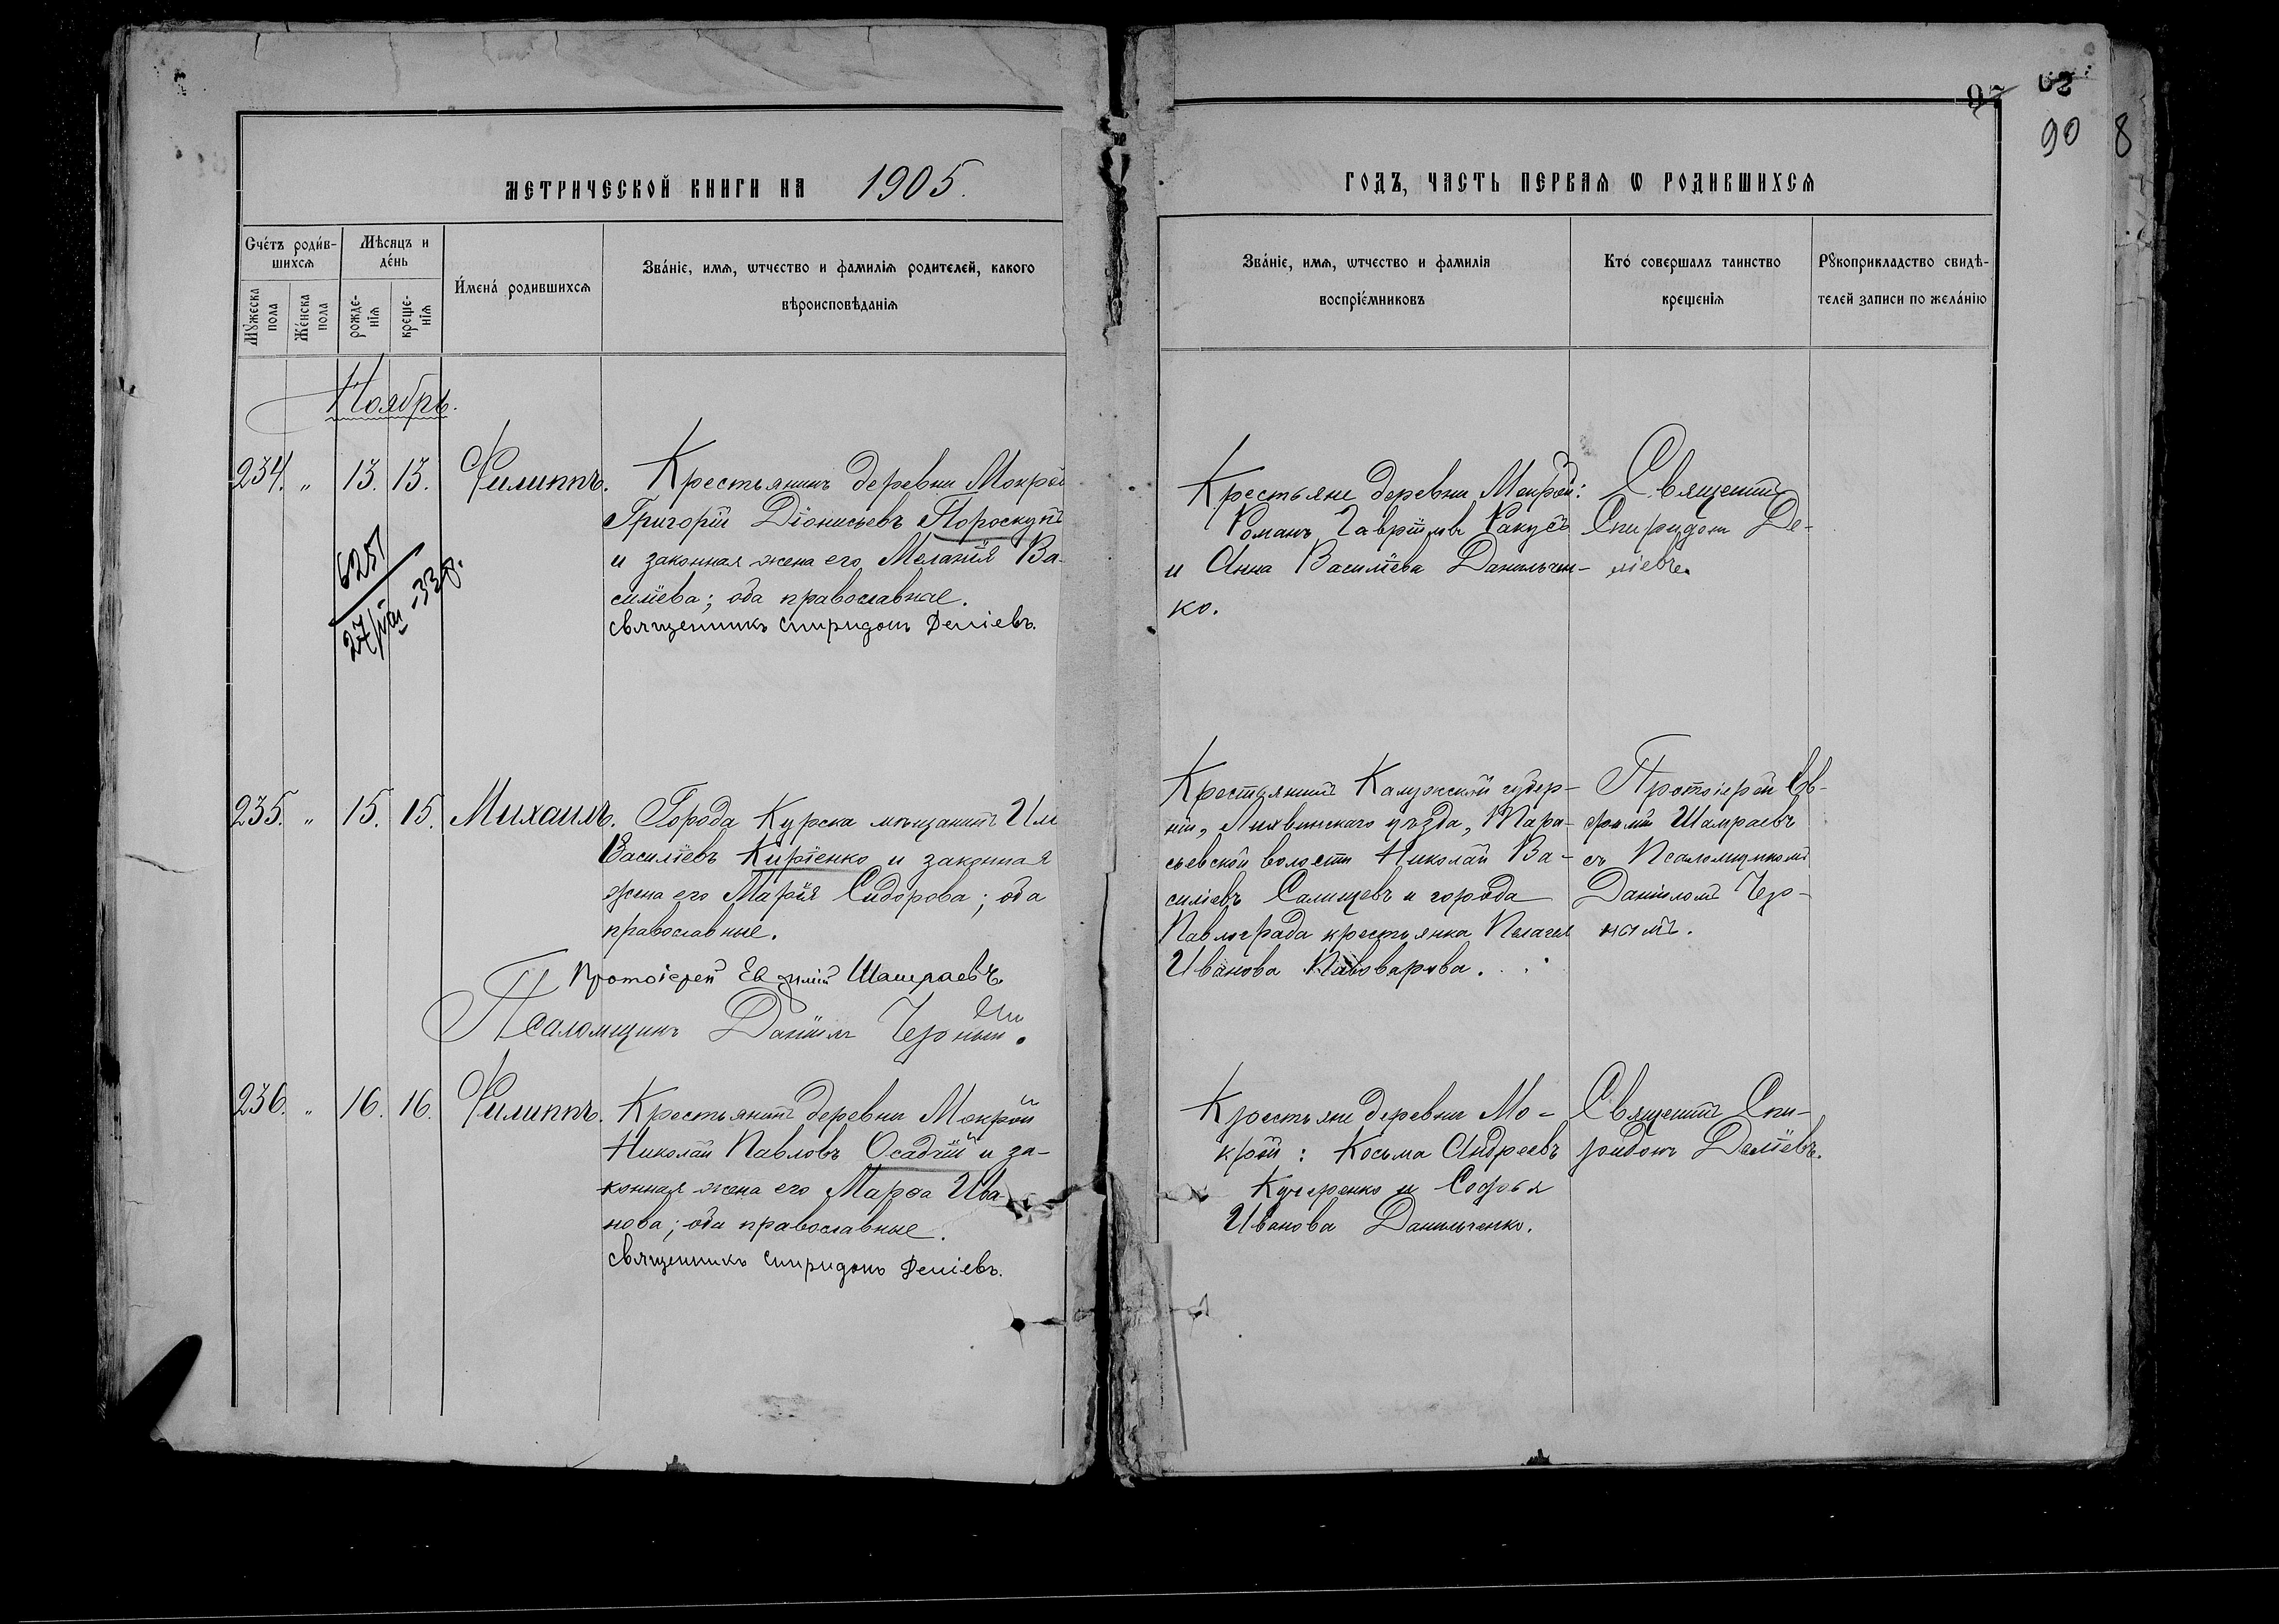 97
90
8
МЕТРИЧЕСКОЙ КНИГИ НА 1905.
ГОДЪ, ЧАСТЬ ПЕРВАѦ Ѡ РОДИВШИХСѦ
Счетъ родив-
шихсѧ
Мѣсяцъ и
день
Имена родившихсѧ
Званіе, имѧ, ѡтчество и фамиліѧ родителей, какого
вѣроисповѣданіѧ
Мꙋжеска
пола
Женска
пола
рожде-
ніѧ
креще-
ніѧ
Званіе, имѧ, ѡтчество и фамиліѧ
воспріемниковъ
Кто совершалъ таинство
крещеніѧ
Рꙋкоприкладство свидѣ-
телей записи по желанію
Ноябрь.
234. " 13. 13. Филиппъ. Крестьянинъ деревни Мокрой
Григорій Діонисьевъ Пороскунъ
и законная жена его Меланія Ва-
силіева; оба православные.
священникъ Спиридонъ Деліевъ.
6251
27/VIII-33г.
Крестьяне деревни Мокрой:
Романъ Гавріиловъ Ракусъ
и Анна Василіева Данильчен-
ко.
Священникъ
Спиридонъ Де-
ліевъ.
235. " 15. 15. Михаилъ. Города Курска мѣщанинъ
Василіевъ Киріенко и законная
жена его Марія Сидорова; оба
православные.
Протоіерей Евфимій Шамраевъ.
Псаломщикъ Даніилъ Черный.
Крестьянинъ Калужской губер-
ніи, Лихвинскаго уѣзда,
волости Николай Ва-
силіевъ Салищевъ и города
Павлограда крестьянка Пелагея
Иванова Пивоварова.
Протоіерей Ев-
фимій Шамраевъ
съ Псаломщикомъ
Даніиломъ Чер-
нымъ.
236. " 16. 16. Филиппъ. Крестьянинъ деревни Мокрой
Николай Павловъ Осадчій и за-
конная жена его Марѳа Ива-
нова; оба православные.
священникъ Спиридонъ Деліевъ.
Крестьяне деревни Мо-
крой: Косьма Андреевъ
Кучеренко и Софья
Иванова Данильченко.
Священникъ Спи-
ридонъ Деліевъ.